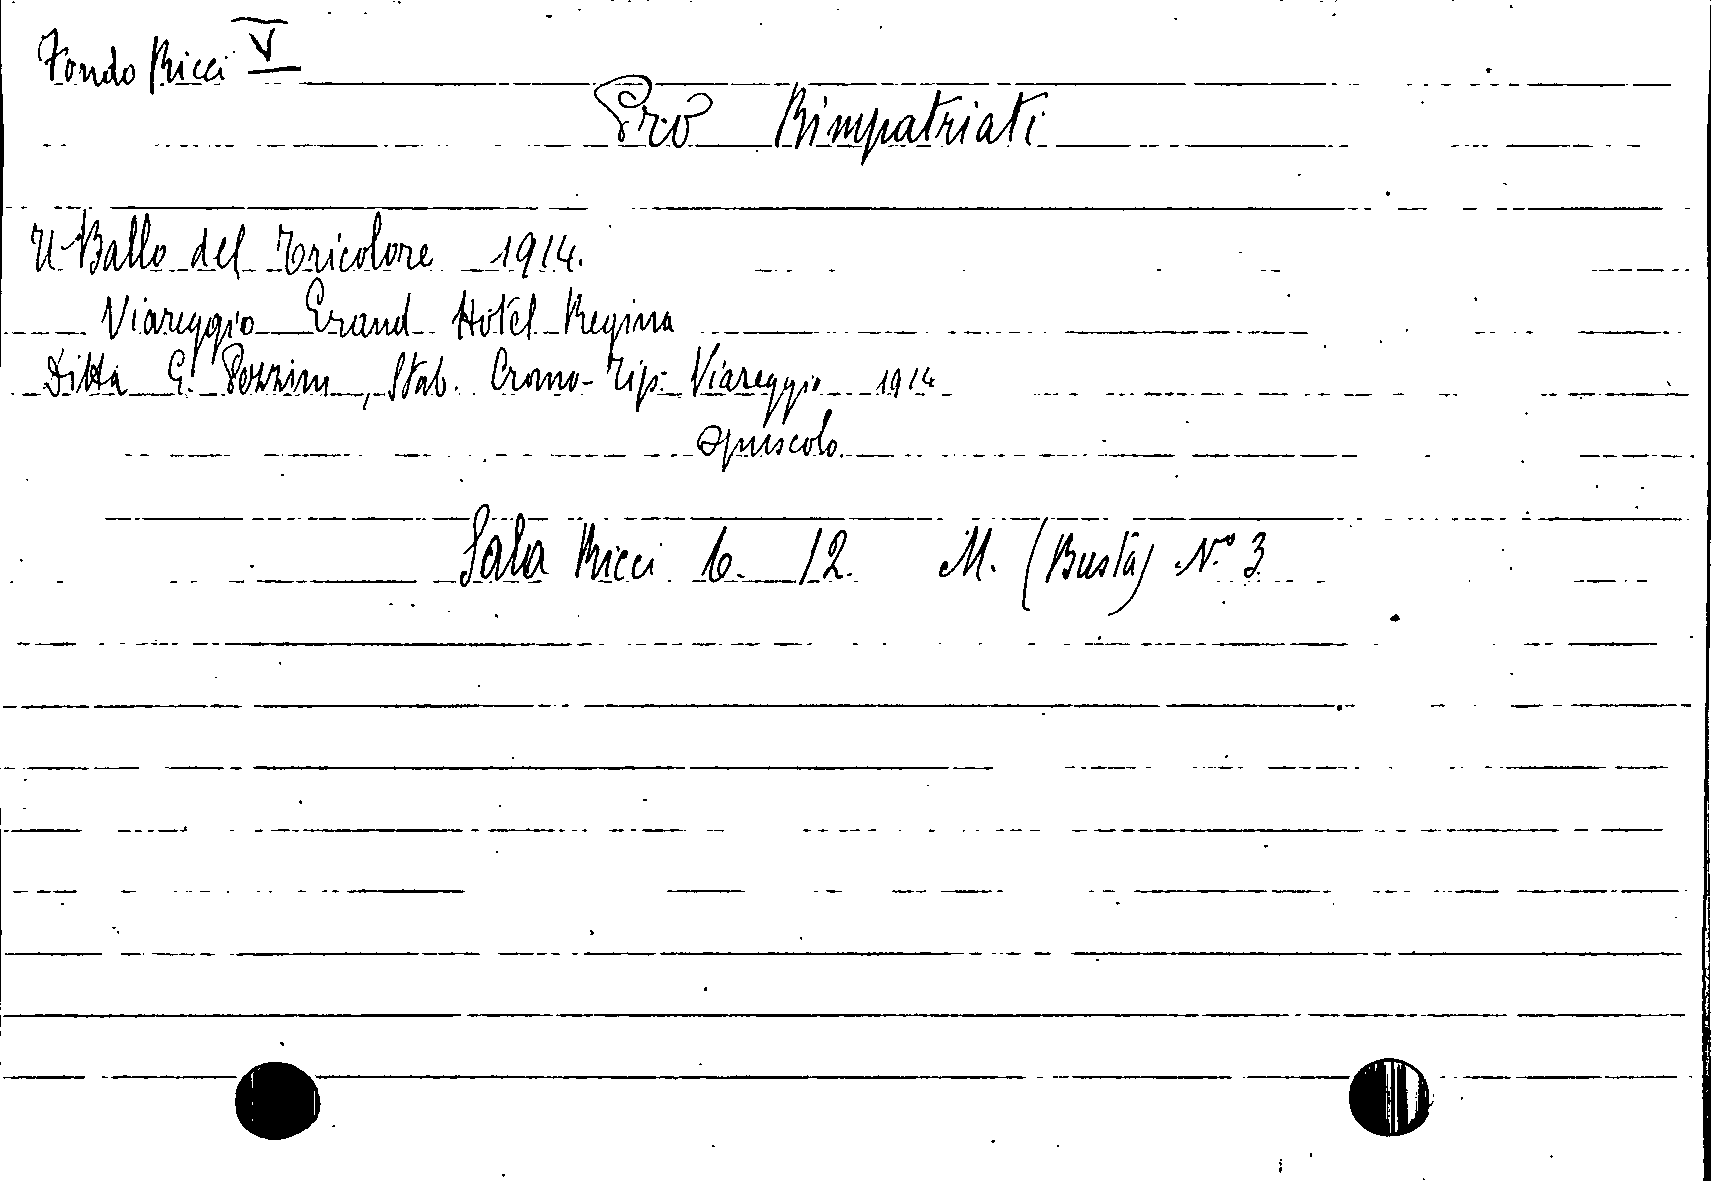 Fondo Ricci V
Pro Rimpatriati
Il Ballo del Tricolore 1914.
Viareggio Grand Hotel Regina
Ditta G. Pezzini, Stab. Cromo-Tip. Viareggio 1914
opuscolo.
Sala Ricci 6. 12. M. (Busta) N.° 3